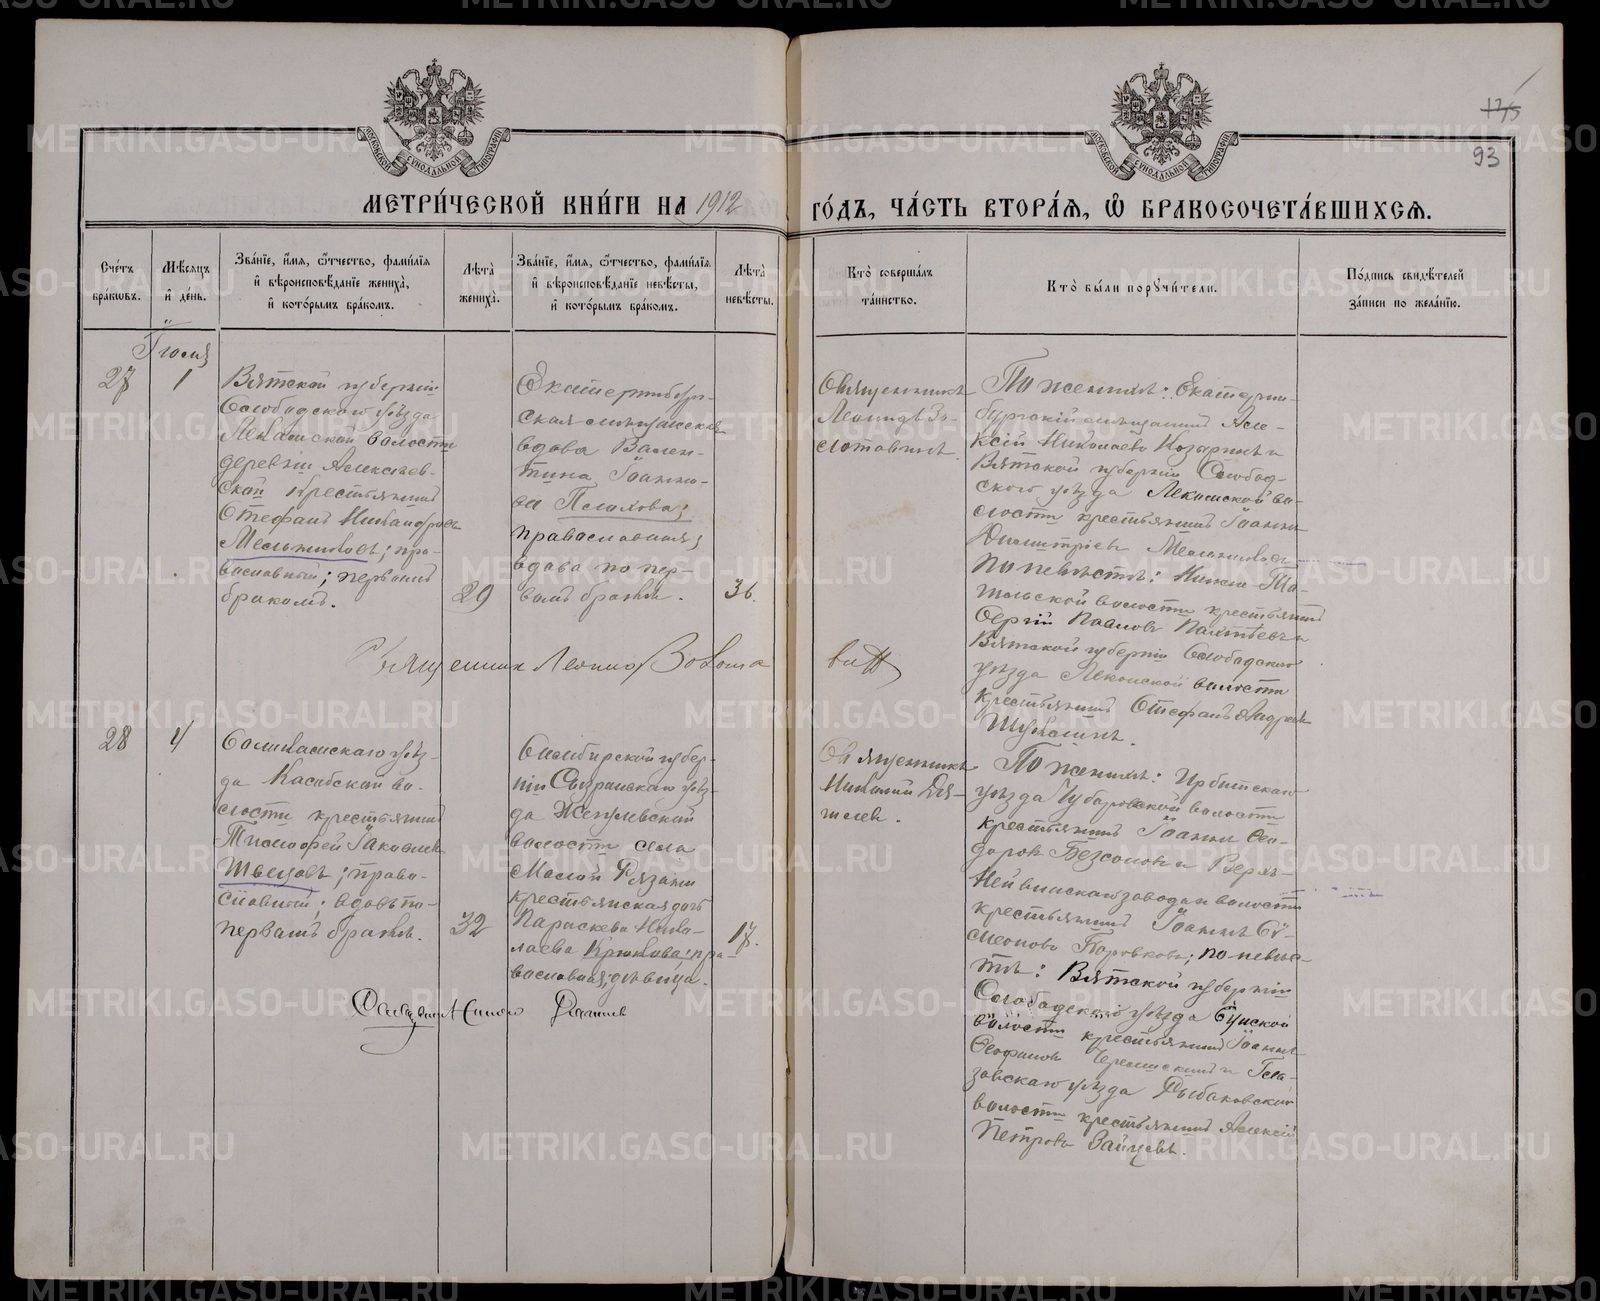 175
93
МОСКОВСКОЙ СИНОДАЛЬНОЙ ТИПОГРАФІИ
МОСКОВСКОЙ СИНОДАЛЬНОЙ ТИПОГРАФІИ
МЕТРИ́ЧЕСКОЙ КНИ́ГИ НА 1912
ГО́ДЪ, ЧА́СТЬ ВТОРА́Я, Ѡ БРАКОСОЧЕТА́ВШИХСЯ.
Сче́тъ
бра́ковъ.
Мѣ́сяцъ
и҆ де́нь.
Зва́нїе, и҆́мя, ѻ҆́тчество, фами́лїя
и҆ вѣроисповѣ́данїе жениха̀,
и҆ кото́рымъ бра́комъ.
Лѣ́та̀
жениха̀.
Зва́нїе, и҆́мя, ѻ҆́тчество, фами́лїя
и҆ вѣроисповѣ́данїе невѣ́сты,
и҆ кото́рымъ бра́комъ.
Лѣ́та̀
невѣ́сты.
Кто̀ соверша́лъ
та́инство.
Кто̀ бы́ли порꙋчи́тели.
По́дпись свидѣ́телей
за́писи по жела́нїю.
Іюля
27
1
Вятской губерніи
Слободского уѣзда
Лекомской волости
деревни Алексѣев-
ской крестьянинъ
Стефанъ Никаноровъ
Мельниковъ; пра-
вославный; первымъ
бракомъ.
29
Екатеринбург-
ская мѣщанская
вдова Вален-
тина Іоанно-
ва Пелихова;
православная;
вдова по пер-
вомъ бракѣ.
36.
Священникъ
Леонидъ Зо-
лотавинъ.
По женихѣ: Екатерин-
бургскій мѣщанинъ Але-
ксѣй Николаевъ Козыринъ и
Вятской губерніи Слобод-
ского уѣзда Лекомской во-
лости крестьянинъ Іоаннъ
Димитріевъ Мельниковъ
по невѣстѣ: Нижне-Та-
гильской волости крестьянинъ
Сергій Павловъ Пахтѣевъ и
Вятской губерніи Слободского
уѣзда Лекомской волости
крестьянинъ Стефанъ Андреевъ
Священник Леонид Золота
вин
28
4
Соликамскаго уѣз-
да Касибской во-
лости крестьянинъ
Тимофей Іаковлевъ
Швецовъ; право-
славный; вдовъ по-
первомъ бракѣ.
32
Симбирской губер-
ніи Сызранскаго уѣз-
да Жегулевской
волости села
Малой Рязани
крестьянская дочь
Параскева Нико-
лаева Крюкова; пра-
вославная; дѣвица.
17.
Священникъ
Николай
По женихѣ: Ирбитскаго
уѣзда Чубаровской волости
крестьянинъ Іоаннъ Ѳео-
доровъ Безсоновъ и Верхъ-
Нейвинскаго завода и волости
крестьянинъ Іоаннъ Си-
меоновъ Коровковъ; по невѣс-
тѣ: Вятской губерніи
Слободского уѣзда Сунской
волости крестьянинъ Іоаннъ
Ѳеофановъ и Гла-
зовскаго уѣзда Рыбаковской
волости крестьянинъ Алексѣй
Петровъ Зайцевъ.
METRIKI.GASO-URAL.RU